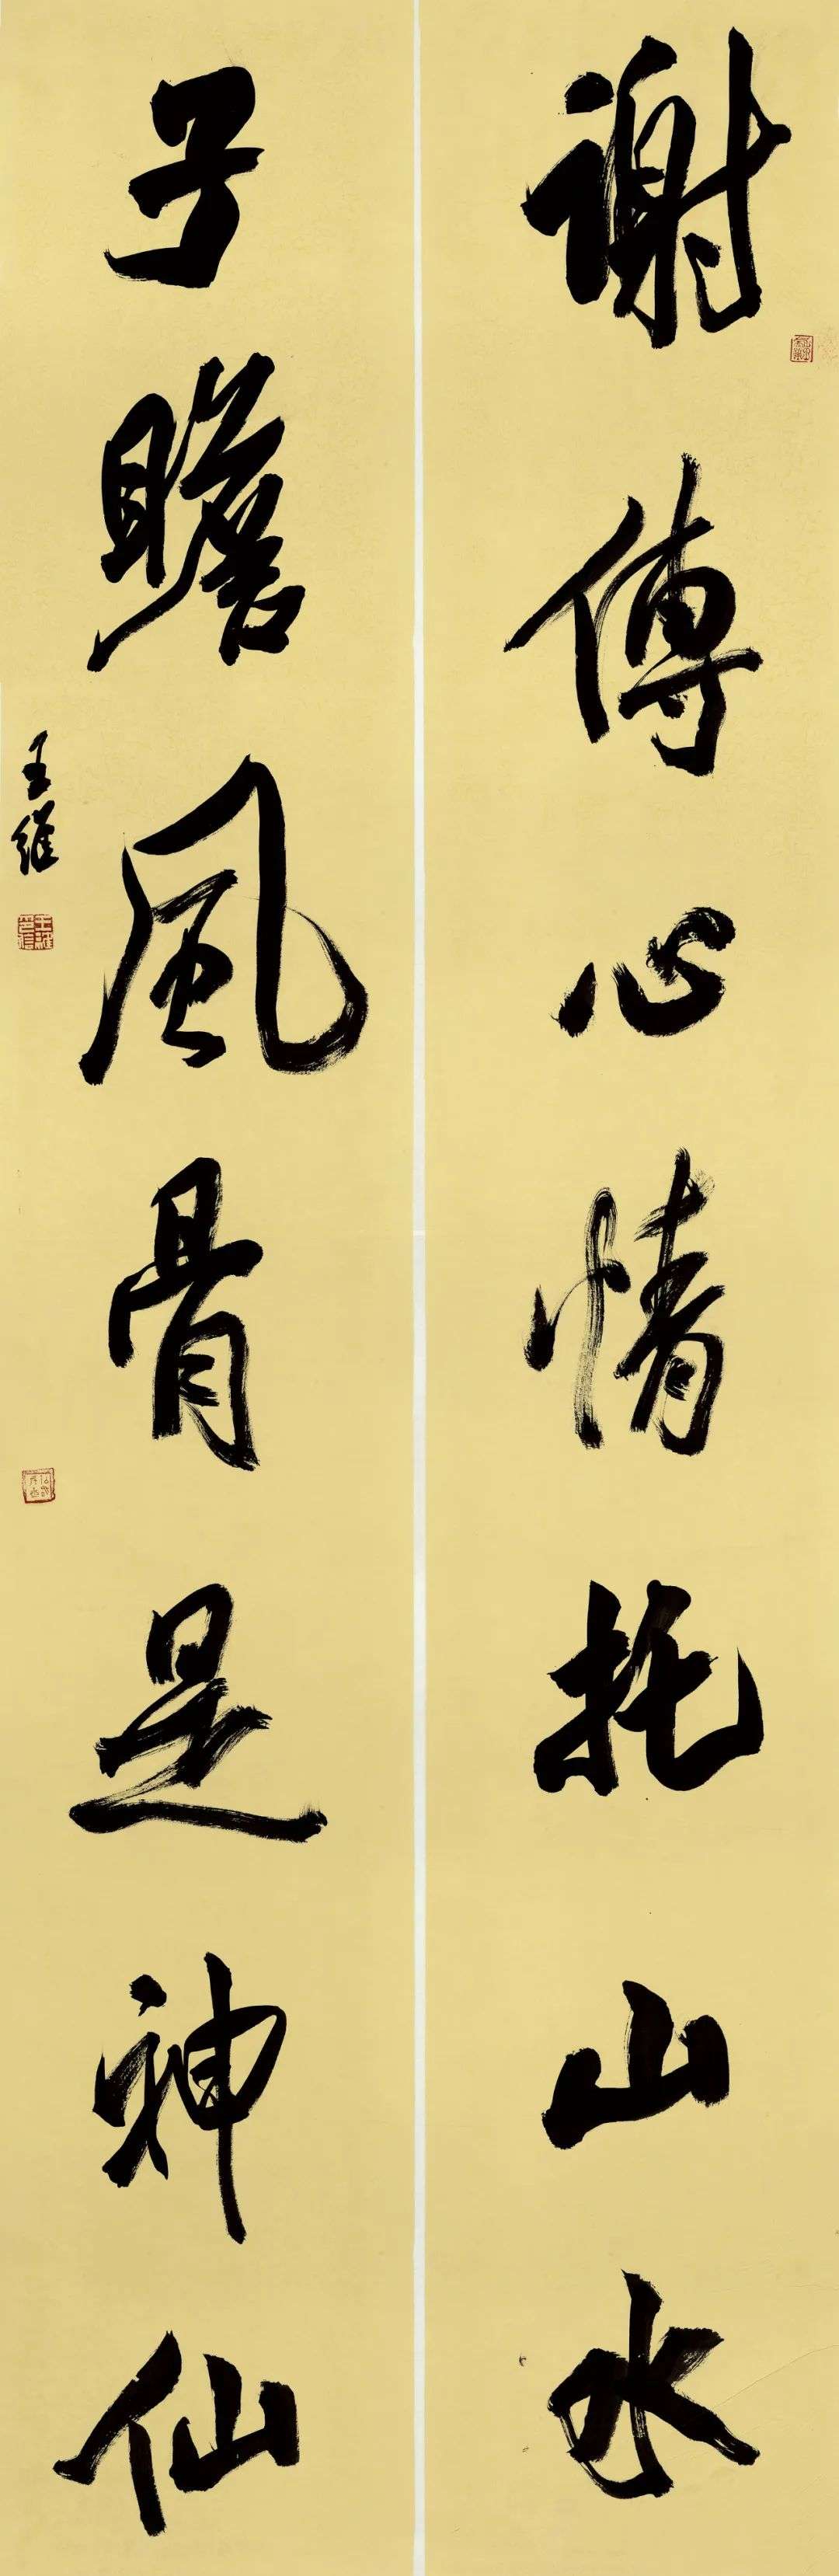 謝傅心情托山水
子瞻風骨是神仙
王繼